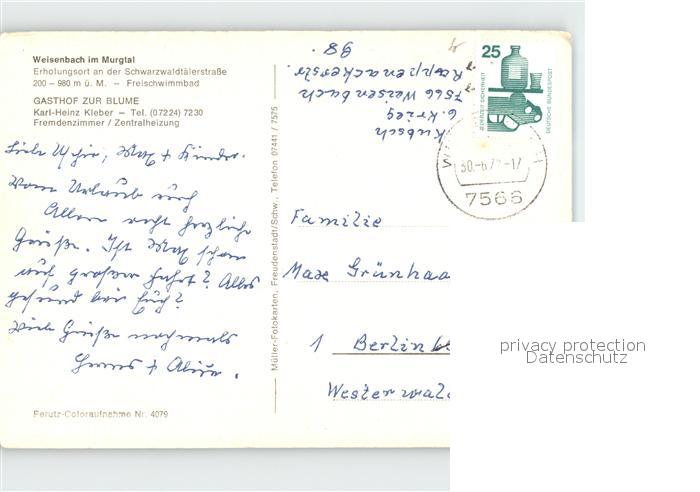 Weisenbach im Murgtal
Erholungsort an der Schwarzwaldtälerstraße
200 – 980 m ü. M. – Freischwimmbad
GASTHOF ZUR BLUME
Karl-Heinz Kleber – Tel. (07224) 7230
Fremdenzimmer / Zentralheizung
Liebe Max + Kinder.
Vom Urlaub euch
Allen recht herzliche
Grüße. Ist Max schon
auf großer Fahrt? Alles
gesund bei Euch?
Viele Grüße nochmals
Hans +
Perutz-Coloraufnahme Nr. 4079
Müller-Fotokarten, Freudenstadt/Schw., Telefon 07441 / 7575
Kubsch
G. Krieg
7566 Weisenbach
Rappenackerstr.
98.
25
JEDERZEIT SICHERHEIT
DEUTSCHE BUNDESPOST
30.-6.7 -17
7566
Familie
Max Grünhaa
1 Berlin
Westerwal
privacy protection
Datenschutz